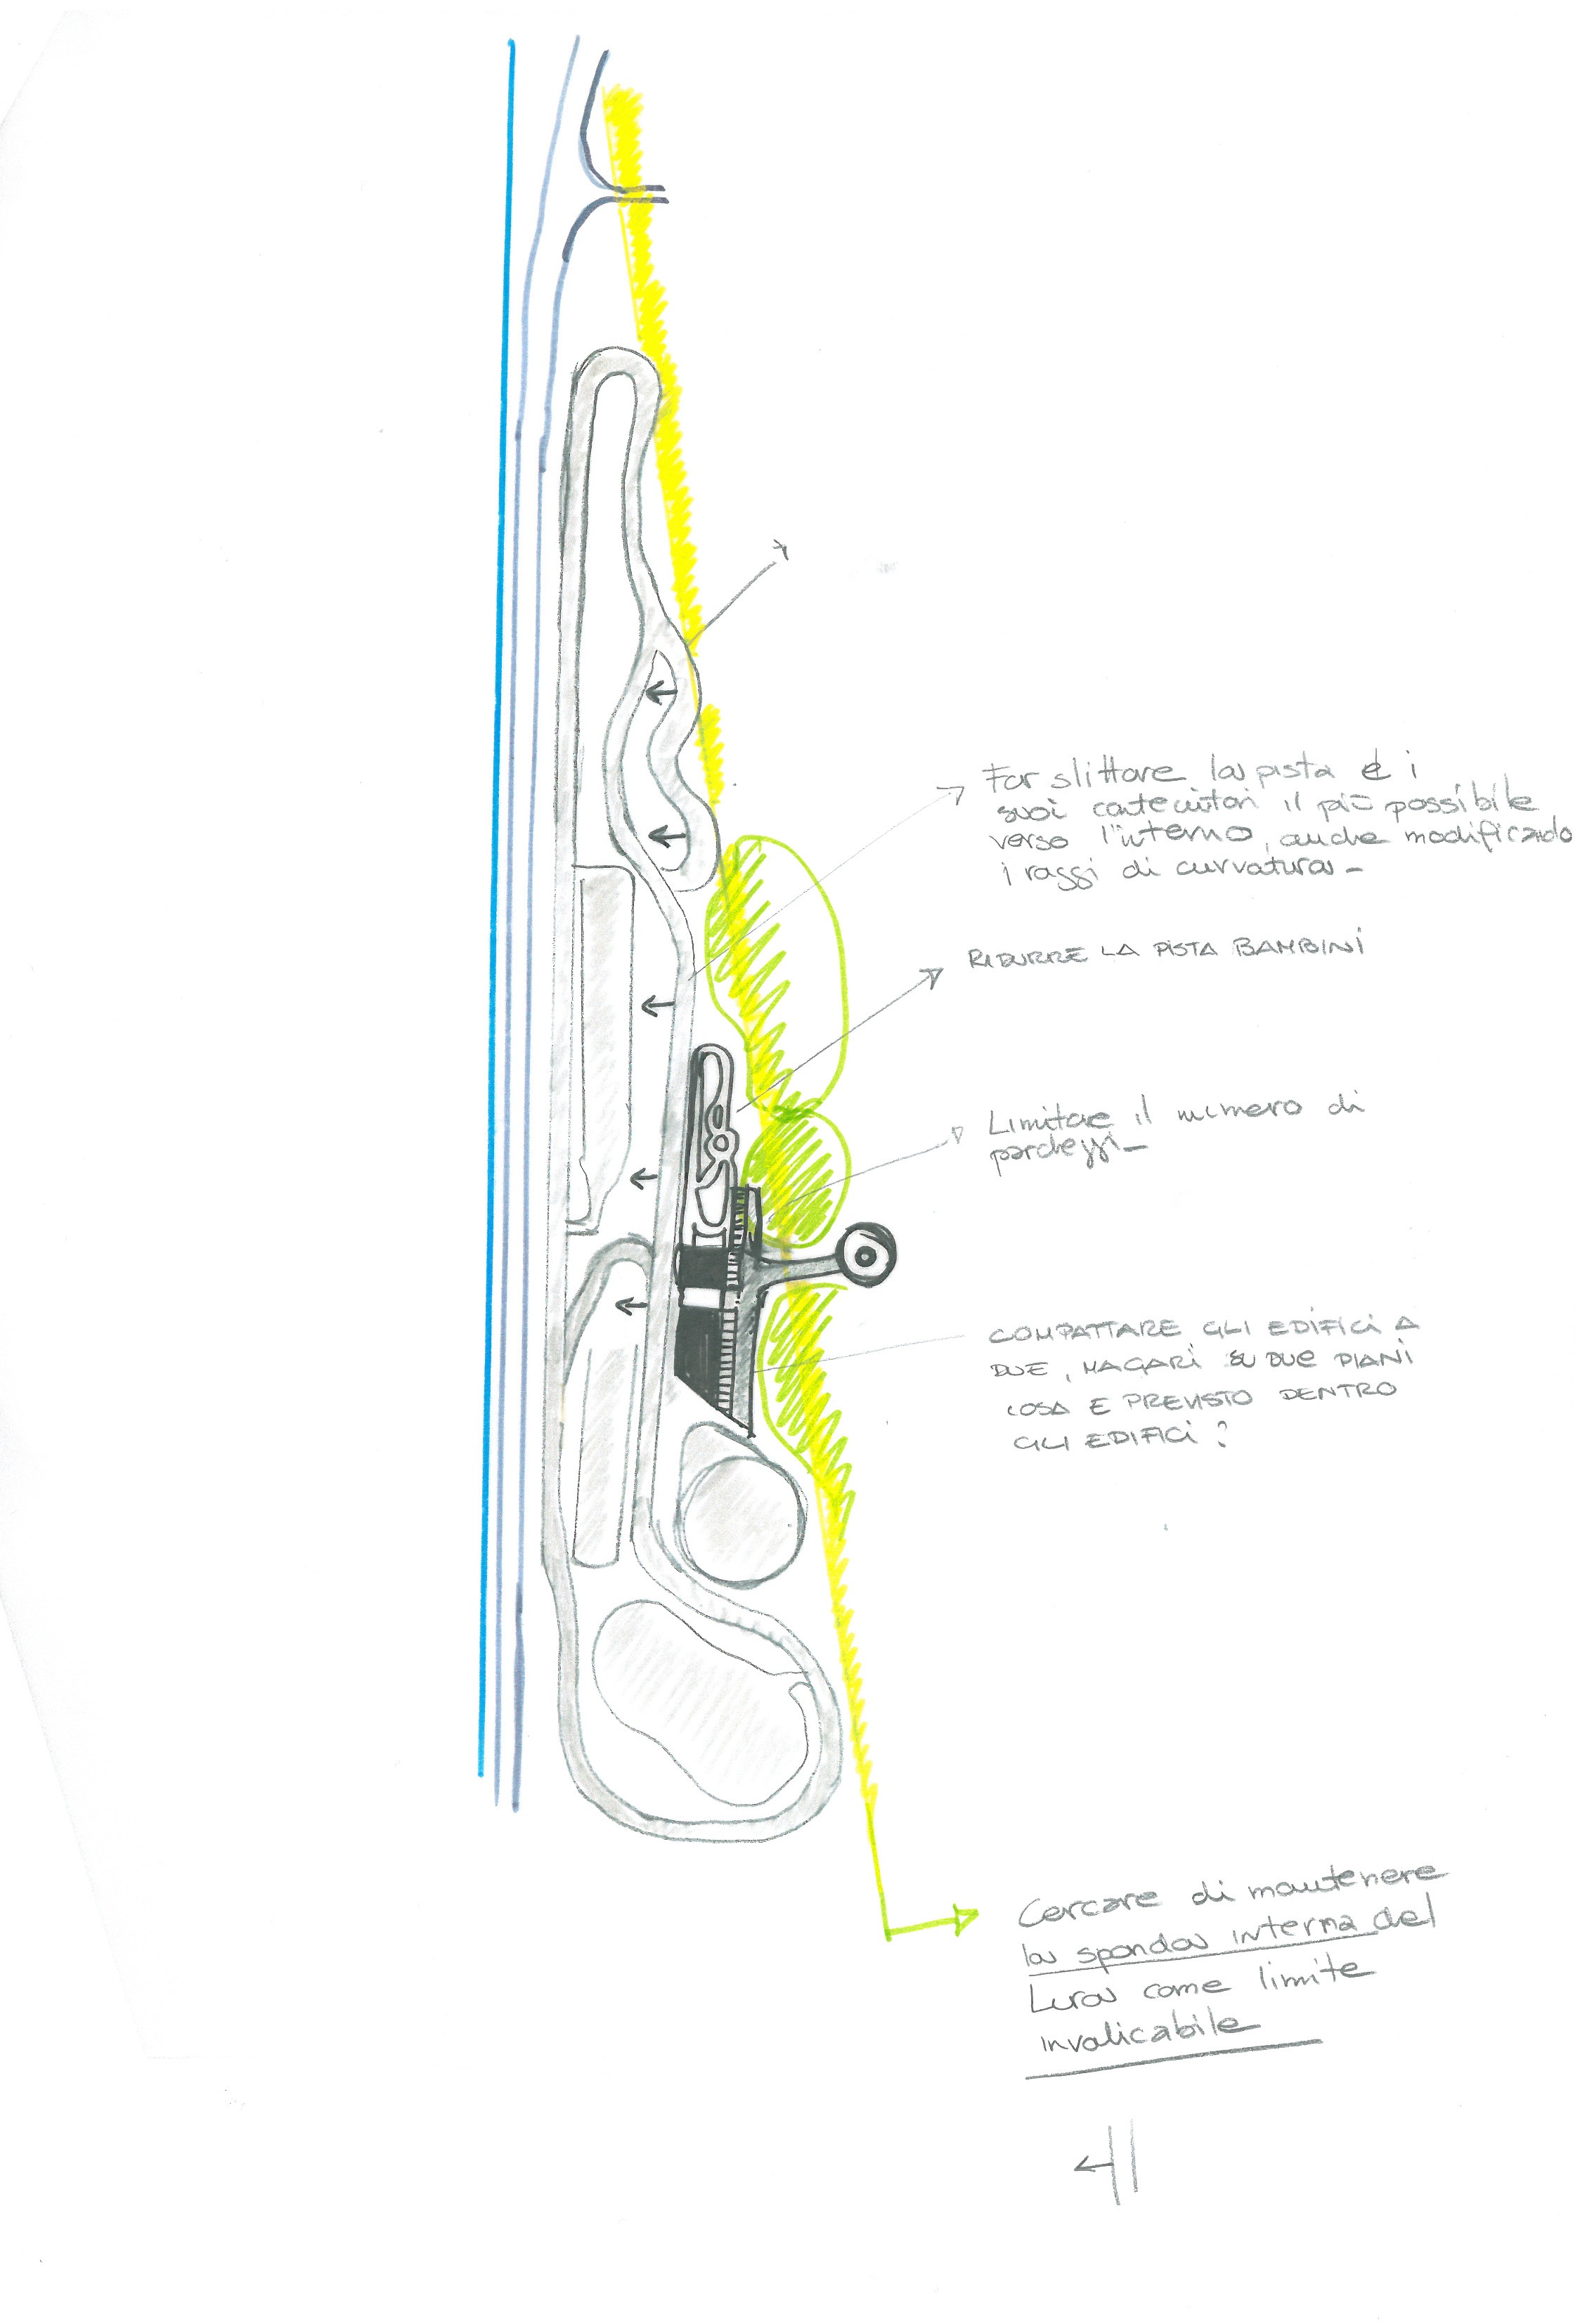 Far slittare la pista e i
suoi contenitori il più possibile
verso l'interno, anche modificando
i raggi di curvatura -
RIDURRE LA PISTA BAMBINI
Limitare il numero di
parcheggi -
COMPATTARE GLI EDIFICI A
DUE, MAGARI SU DUE PIANI
COSA E PREVISTO DENTRO
GLI EDIFICI?
Cercare di mantenere
la sponda interna del
Lura come limite
invalicabile